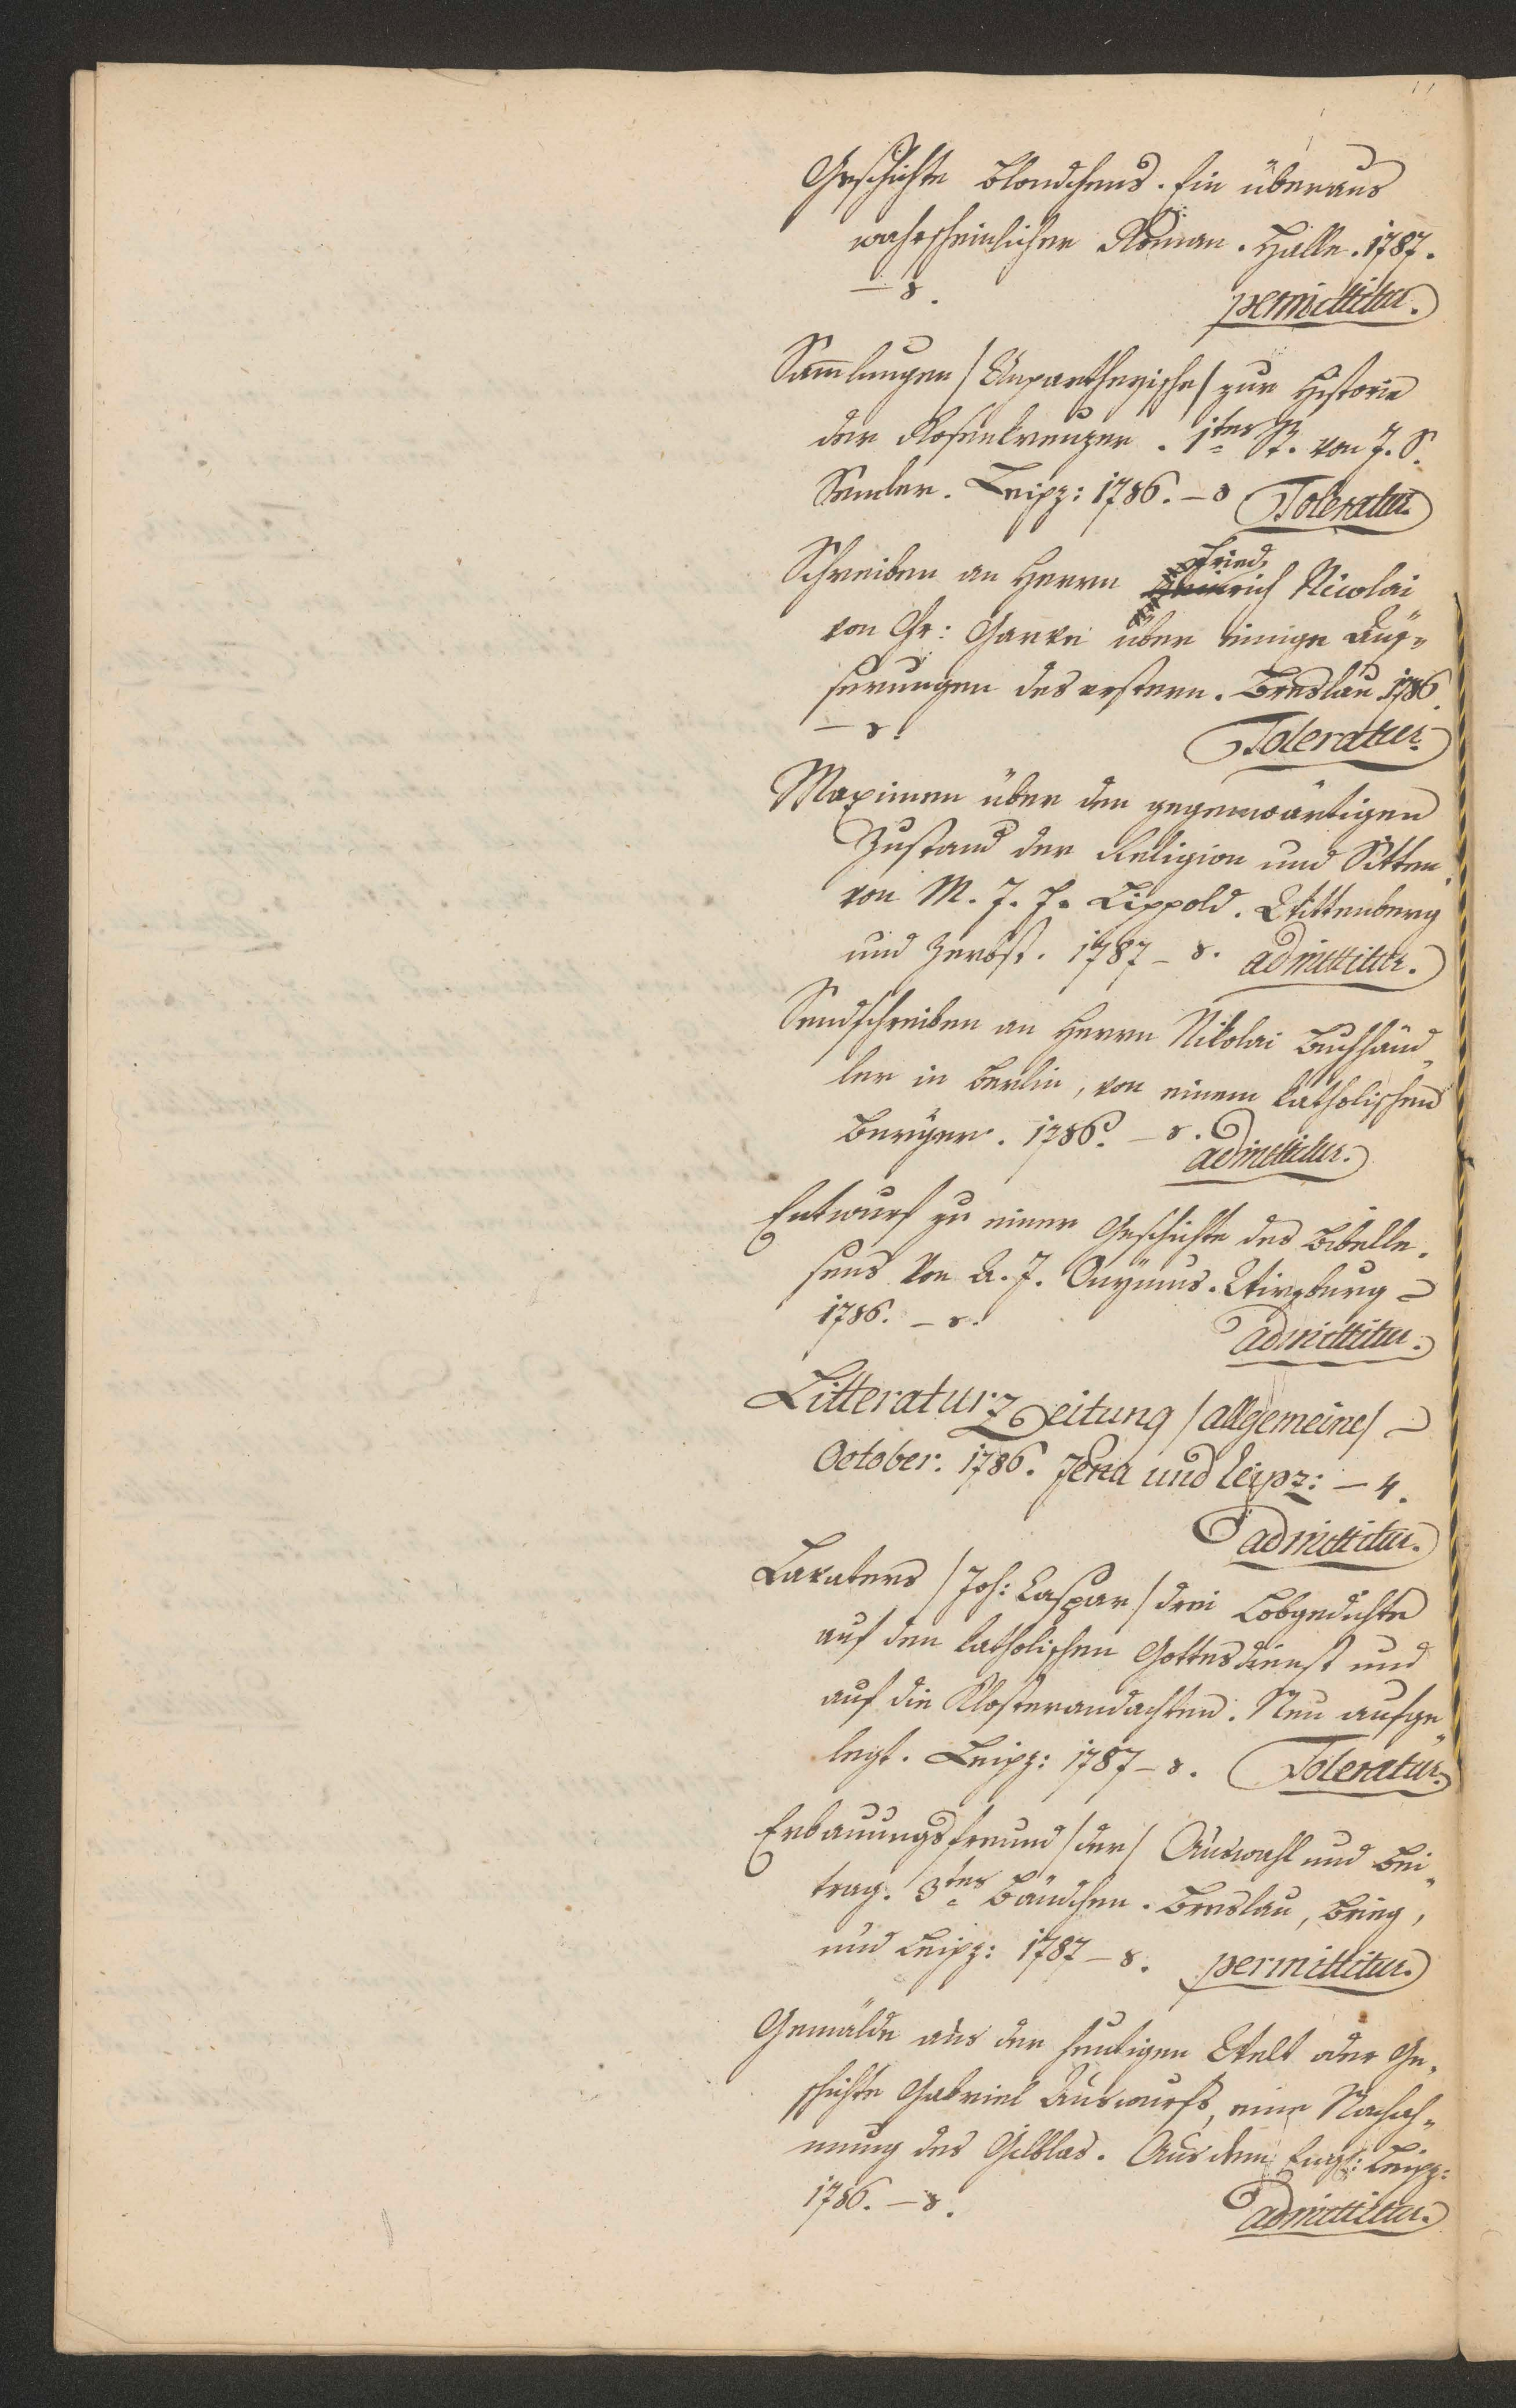 Geschichte Blondchens. Ein überaus
wahrscheinlicher Roman. Halle. 1787.
— 8.
permittitur.
Sam̅lungen /Unpartheyische/ zur Historie
der Rosenkreuzer. 1tes St. von J. S.
Semler. Leipz: 1786. — 8 Toleratur.
Fried.
Schreiben an Herrn Heinrich Nicolai
von Chr: Garve über einige Äus„
serungen des erstern. Breslau 1786.
— 8.
Toleratur.
Maximen über den gegenwärtigen
Zustand der Religion und Sitten.
von M. J. F. Lippold. Wittenberg
und Zerbst. 1787 — 8. admittitur.
Sendschreiben an Herrn Nikolai Buchhänd„
ler in Berlin, von einem katholischen
Bürger. 1786. — 8.
admittitur.
Entwurf zu einer Geschichte des Bibelle„
sens von A. J. Onymus. Wirzburg
1786. — 8.
admittitur.
Litteraturzeitung /allgemeine/
October. 1786. Jena und Leipz: — 4.
admittitur.
Lavaters /Joh: Caspar/ drei Lobgedichte
auf den katholischen Gottesdienst und
auf die Klosterandachten. Neu aufge„
legt. Leipz: 1787 — 8. Toleratur.
Erbauungsfreund /der/ Auswahl und Bei„
trag. 3tes Bändchen. Breslau, Brieg,
und Leipz: 1787 — 8. permittitur.
Gemälde aus der heutigen Welt oder Ge„
schichte Gabriel Auswurfs, eine Nachah„
mung des Gilblas. Aus dem Engl: Leipz:
1786. — 8.
admittitur.